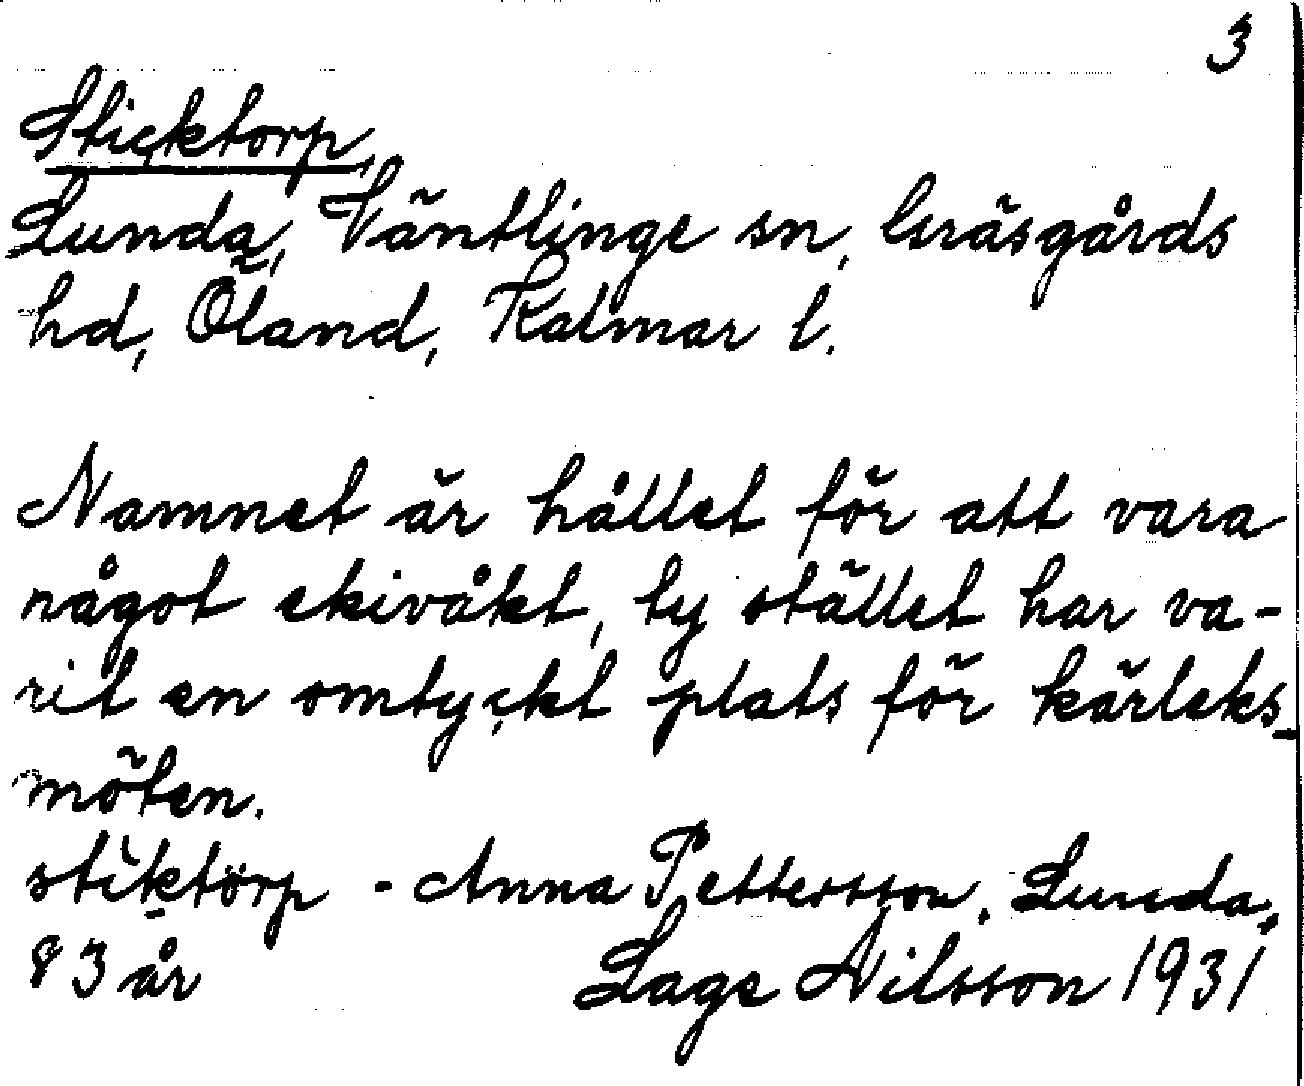 3
Sticktorp,
Lunda, Väntlinge sn, Gräsgårds
hd, Öland, Kalmar l.
Namnet är hållet för att vara
något ekivåkt, ty stället har va-
rit en omtyckt plats för kärleks-
möten.
stiktörp - Anna Pettersson, Lunda,
83 år
Lage Nilsson 1931